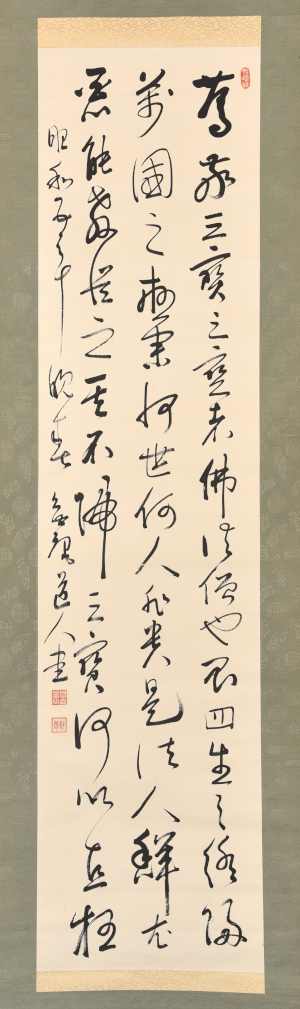 篤敬三寶三寶者佛法僧也則四生之終歸
萬國之極宗何世何人非貴是法人鮮尤
惡能教從之其不歸三寶何以直枉
昭和 晩春 道人書